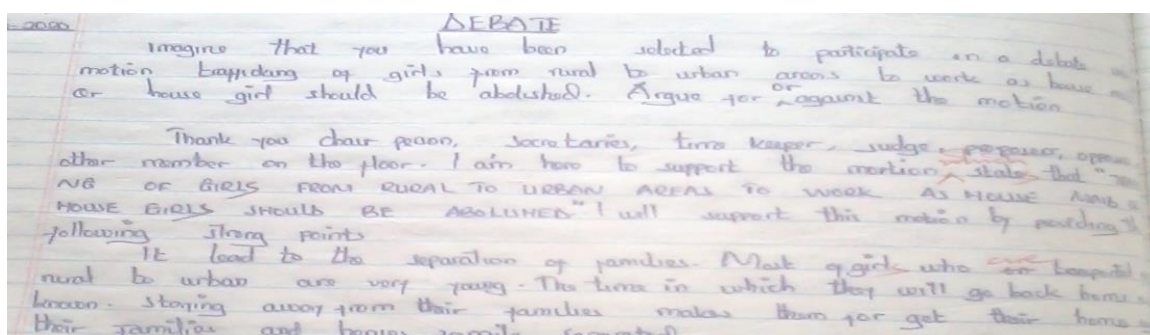 2020
DEBATE
Imagine that you have been selected to participate on a debate
motion trafficking of girls from rural to urban areas to work as house
or house girl should be abolished. Argue for or against the motion
Thank you chair person, secretaries, time keeper, judge, proposer,
other member on the floor. I am here to support the mortion state that
NG OF GIRLS FROM RURAL TO URBAN AREAS TO WORK AS HOUSE
HOUSE GIRLS SHOULD BE ABOLISHED" I will support this motion by providing
following strong points
It lead to the separation of families. Most of girls who are
rural to urban are very young. The time in which they will go back home
known. staying away from their families makes them for get their home
their families and